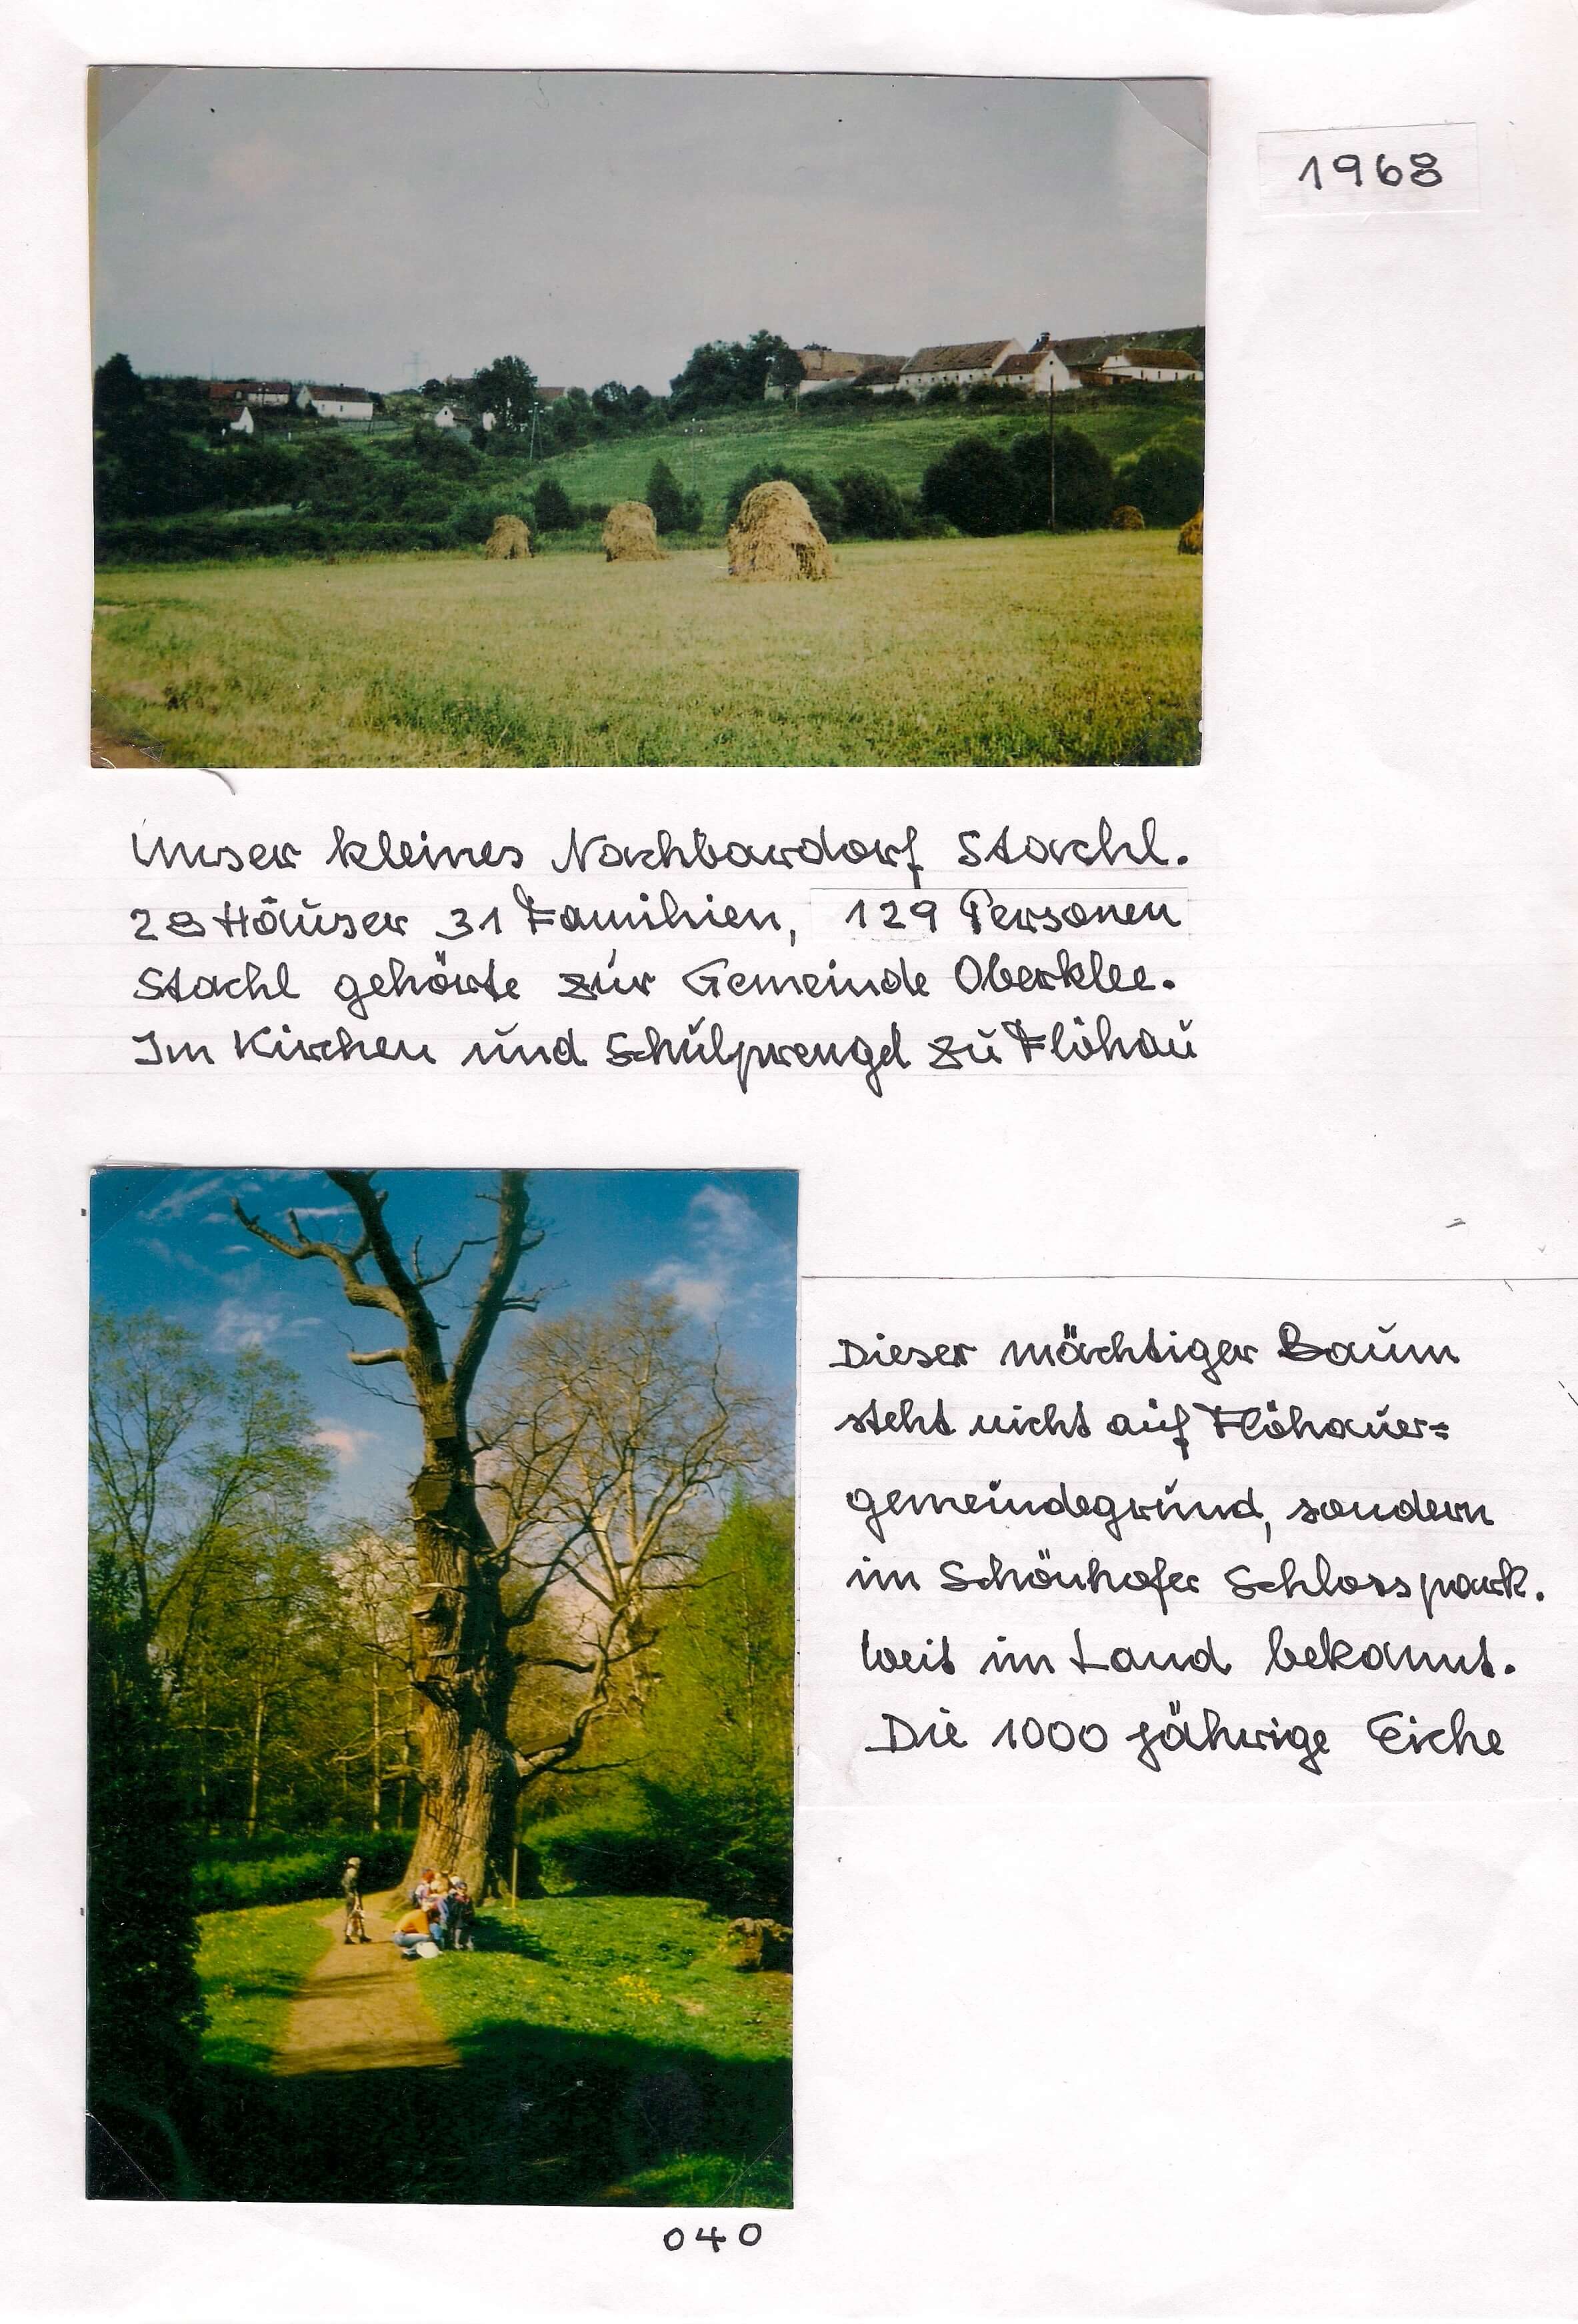 1968
Unser kleines Nachbardorf Stachl.
28 Häuser 31 Familien, 129 Personen
Stachl gehörte zur Gemeinde Oberklee.
Im Kirchen und Schulprengel zu Flöhau
Dieser mächtiger Baum
steht nicht auf Flöhauer=
gemeindegrund, sondern
im Schönhofer Schlosspark.
Weit im Land bekannt.
Die 1000 jährige Eiche
040